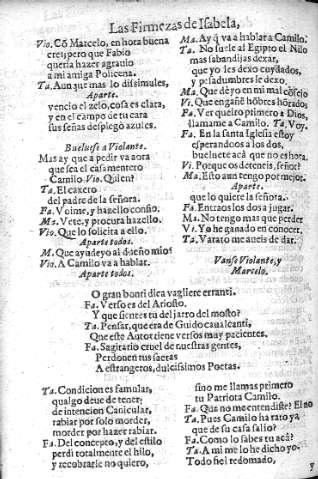 Las Firmezas de Isabela,
Vio. Cõ Marcelo, en hora buena
creî, pero que Fabio
queria hazer agrauio
a mi amiga Policena.
Ta. Aunque mas lo dissimules,
Aparte.
vencio el zelo, cosa es clara,
y en el campo de tu cara
sus señas desplegò azules.
Bueluese a Violante.
Mas ay que a pedir va aora
que sea el casamentero
Camilo. Vio. Quien?
Ta. El caxero
del padre de la señora.
Fa. Voime, y hazello confio.
Ma. Vete, y procura hazello.
Vio. Que lo solicita a ello.
Aparte todos.
M. Que ayude yo al dueño mio?
Vio. A Camilo va a hablar.
Aparte todos.
Ma. Ay q̃ va a hablar a Camilo.
Ta. No suele al Egipto el Nilo
mas sabandijas dexar,
que yo les dexo cuydados,
y pesadumbres le dexo.
Ma. Que dè yo en mi mal cõsejo
Vi. Que engañè hõbres hõrados
Fa. Ver quiero primero a Dios,
llamame a Camilo. Ta. Voy.
Fa. En la santa Iglesia estoy
esperandoos a los dos,
bueluete acà que no es hora.
Vi. Porque os deteneis, señor?
Ma. Esto aun tengo por mejor.
Aparte.
que lo quiere la señora.
Fa. Entraos los dos a jugar.
Ma. No tengo mas que perder
Vi. Yo he ganado en conocer.
Ta. Varato me aueis de dar.
Vanse Violante, y
Marcelo.
O gran bontà dica vagliere erranti.
Fa. Verso es del Ariosto.
Y que sientes tu del jarro del mosto?
Ta. Pensar, que era de Guido caualcanti,
Que este Autor tiene versos muy pacientes.
Fa. Sagitario cruel de nuestras gentes,
Perdonen tus saetas
A estrangeros, dulcissimos Poetas.
Ta. Condicion es famular,
qualgo deue de tener
de intencion Canicular,
rabiar por solo morder,
morder por hazer rabiar.
Fa. Del concepto, y del estilo
perdi totalmente el hilo,
y recobrarle no quiero,
sino me llamas primero
tu Patriota Camilo.
Fa. Que no me entendiste? El no
Ta. Pues Camilo ha rato ya
que de su casa salio?
Fa. Como lo sabes tu acà?
Ta. A mi me lo he dicho yo.
Todo fiel redomado,